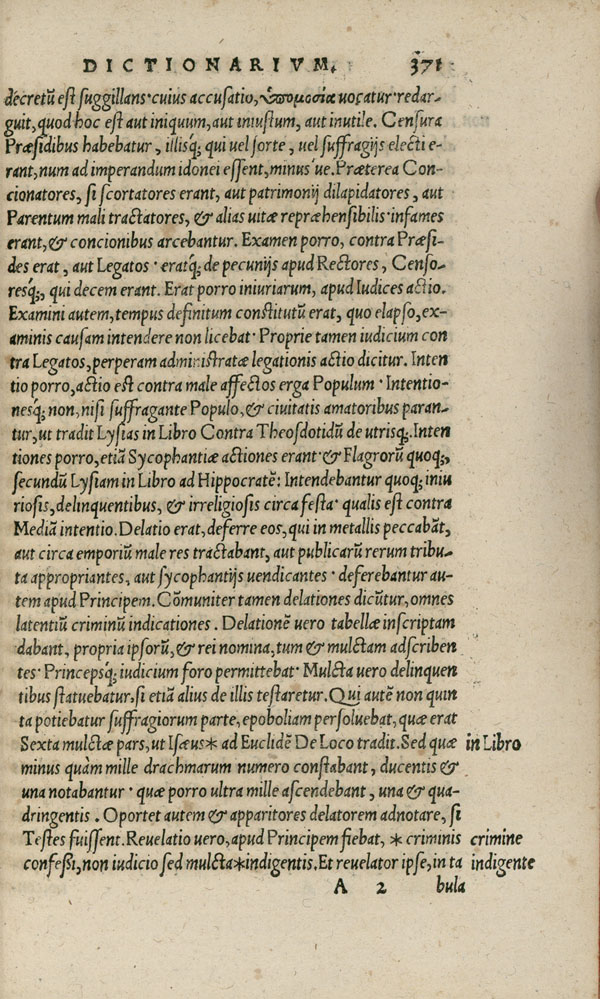 DICTIONARIVM. 371
décretũ est suggillans·cuius accusatio, ὑπομοσία uocatur·redar-
guit, quod hoc est aut iniquum, aut iniustum, aut inutile. Censura
Præsidibus habebatur, illisq́; qui uel sorte, uel suffragijs electi e-
rant, num ad imperandum idonei essent, minus'ue. Præterea Con-
cionatores, si scortatores erant, aut patrimonij dilapidatores, aut
Parentum mali tractatores, & alias uitæ repræhensibilis·infames
erant, & concionibus arcebantur. Examen porro, contra Præsi-
des erat, aut Legatos·eratq́; de pecunijs apud Rectores, Censo-
resq́;, qui decem erant. Erat porro iniuriarum, apud Iudices actio.
Examini autem, tempus definitum constitutũ erat, quo elapso, ex-
aminis causam intendere non licebat· Proprie tamen iudicium con
tra Legatos, perperam administratæ legationis actio dicitur. Inten
tio porro, actio est contra male affectos erga Populum· Intentio-
nesq́; non, nisi suffragante Populo, & ciuitatis amatoribus paran-
tur, ut tradit Lysias in Libro Contra Theosdotidũ de utrisq́;. Inten
tiones porro, etiã Sycophantiæ actiones erant·& Flagrorũ quoq́;,
secundũ Lysiam in Libro ad Hippocratẽ: Intendebantur quoq́; iniu
riosis, delinquentibus, & irreligiosis circa festa· qualis est contra
Mediã intentio. Delatio erat, deferre eos, qui in metallis peccabãt,
aut circa emporiũ male res tractabant, aut publicarũ rerum tribu-
ta appropriantes, aut sycophantijs uendicantes·deferebantur au-
tem apud Principem. Cõmuniter tamen delationes dicũtur, omnes
latentiũ criminũ indicationes. Delationẽ uero tabellæ inscriptam
dabant, propria ipsorũ, & rei nomina, tum & mulctam adscriben
tes· Princepsq́; iudicium foro permittebat· Mulcta uero delinquen
tibus statuebatur, si etiã alius de illis testaretur. Qui autẽ non quin
ta potiebatur suffragiorum parte, epoboliam persoluebat, quæ erat
Sexta mulctæ pars, ut Isæus* ad Euclidẽ De Loco tradit. Sed quæ in Libro
minus quàm mille drachmarum numero constabant, ducentis &
una notabantur·quæ porro ultra mille ascendebant, una & qua-
dringentis. Oportet autem & apparitores delatorem adnotare, si
Testes fuissent. Reuelatio uero, apud Principem fiebat, * criminis crimine
confeßi, non iudicio sed mulcta*indigentis. Et reuelator ipse, in ta indigente
A 2 bula